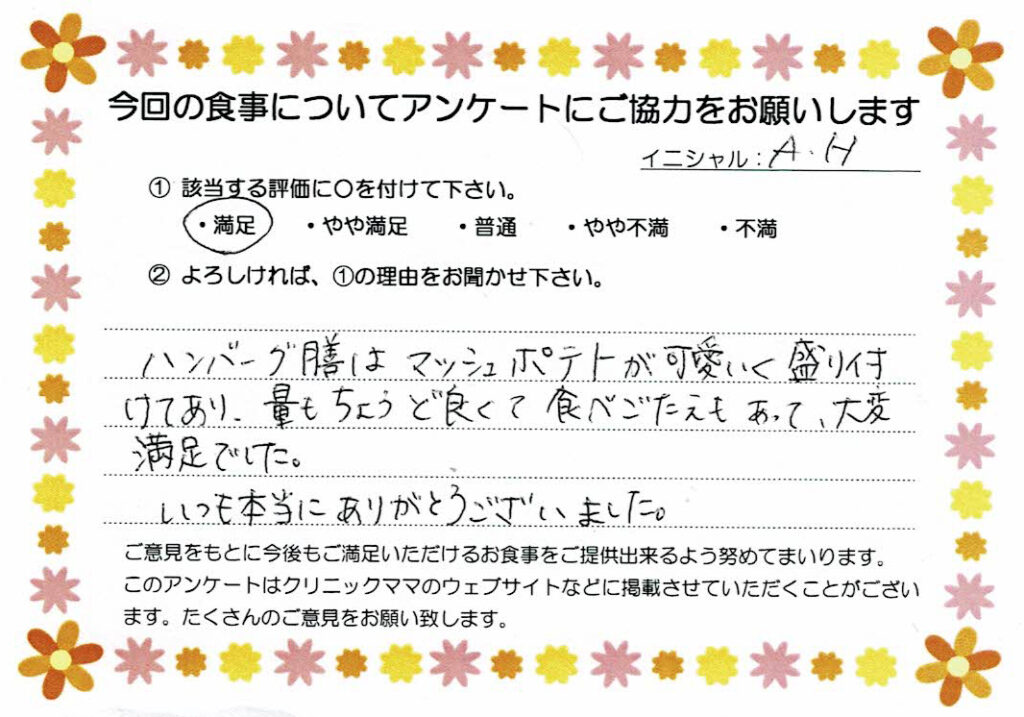 今回の食事についてアンケートにご協力をお願いします
イニシャル：A.H
① 該当する評価に〇を付けて下さい。
・満足 ・やや満足 ・普通 ・やや不満 ・不満
② よろしければ、①の理由をお聞かせ下さい。
ハンバーグ膳は マッシュポテトが可愛いく盛り付
けてあり、量もちょうど良くて 食べごたえもあって、大変
満足でした。
いつも本当にありがとうございました。
ご意見をもとに今後もご満足いただけるお食事をご提供出来るよう努めてまいります。
このアンケートはクリニックママのウェブサイトなどに掲載させていただくことがござい
ます。たくさんのご意見をお願い致します。